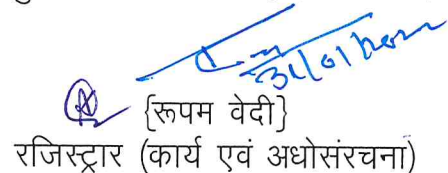 {रूपम वेदी}
रजिस्ट्रार (कार्य एवं अधोसंरचना)